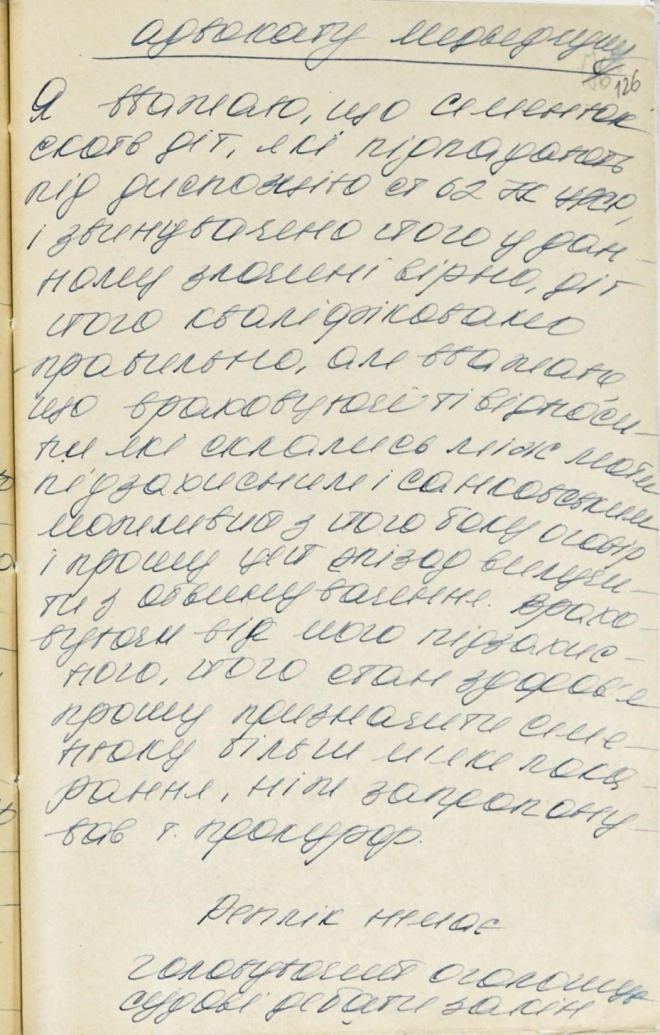 адвокату Медведчуку
126
Я вважаю, що Семенюк
скоїв дії, які підпадають
під диспозицію ст 62 КК УРСР,
і звинувачено його у дан-
ному злочині вірно, дії
його кваліфіковано
правильно, але вважаю
що враховуючи ті відноси-
ни які склались між моїм
підзахисним і Санковським
можливий з його боку оговір
і прошу цей епізод вилучи-
ти з обвинувачення. Врахо-
вуючи вік мого підзахис-
ного, його стан здоров'я
прошу призначити Семе-
нюку більш мягке пока-
рання, ніж запропону-
вав т. прокурор.
Реплік немає
головуючий оголошує
судові дебати закін